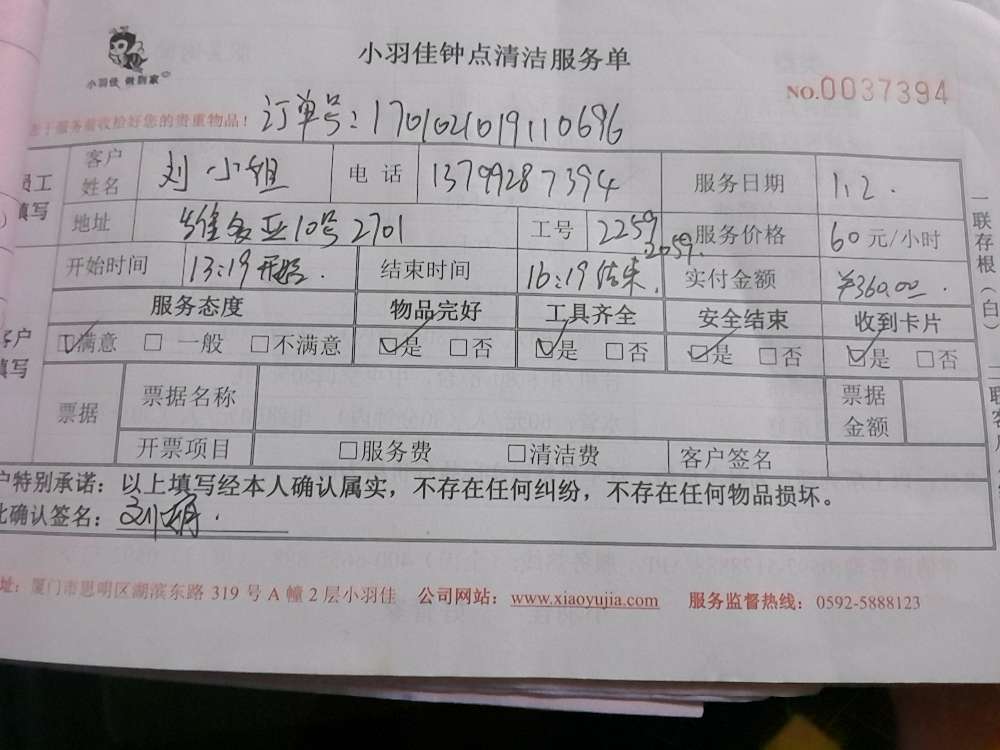 小羽佳 做到家
小羽佳钟点清洁服务单
NO.0037394
于服务验收恰好您的贵重物品！ 订单号：1701021019110696
员工填写 客户姓名 刘小姐 电话 13799287394 服务日期 1.2.
地址 维多亚10号2701 工号 2259 2059. 服务价格 60元/小时
开始时间 13:19开始. 结束时间 16:19结束. 实付金额 ¥360.00.
服务态度 物品完好 工具齐全 安全结束 收到卡片
客户填写 ☑满意 □一般 □不满意 ☑是 □否 ☑是 □否 ☑是 □否 ☑是 □否
票据 票据名称 票据金额
开票项目 □服务费 □清洁费 客户签名
户特别承诺：以上填写经本人确认属实，不存在任何纠纷，不存在任何物品损坏。
此确认签名：刘
址：厦门市思明区湖滨东路 319 号 A 幢 2 层小羽佳 公司网站：www.xiaoyujia.com 服务监督热线：0592-5888123
一联存根（白）
二联客